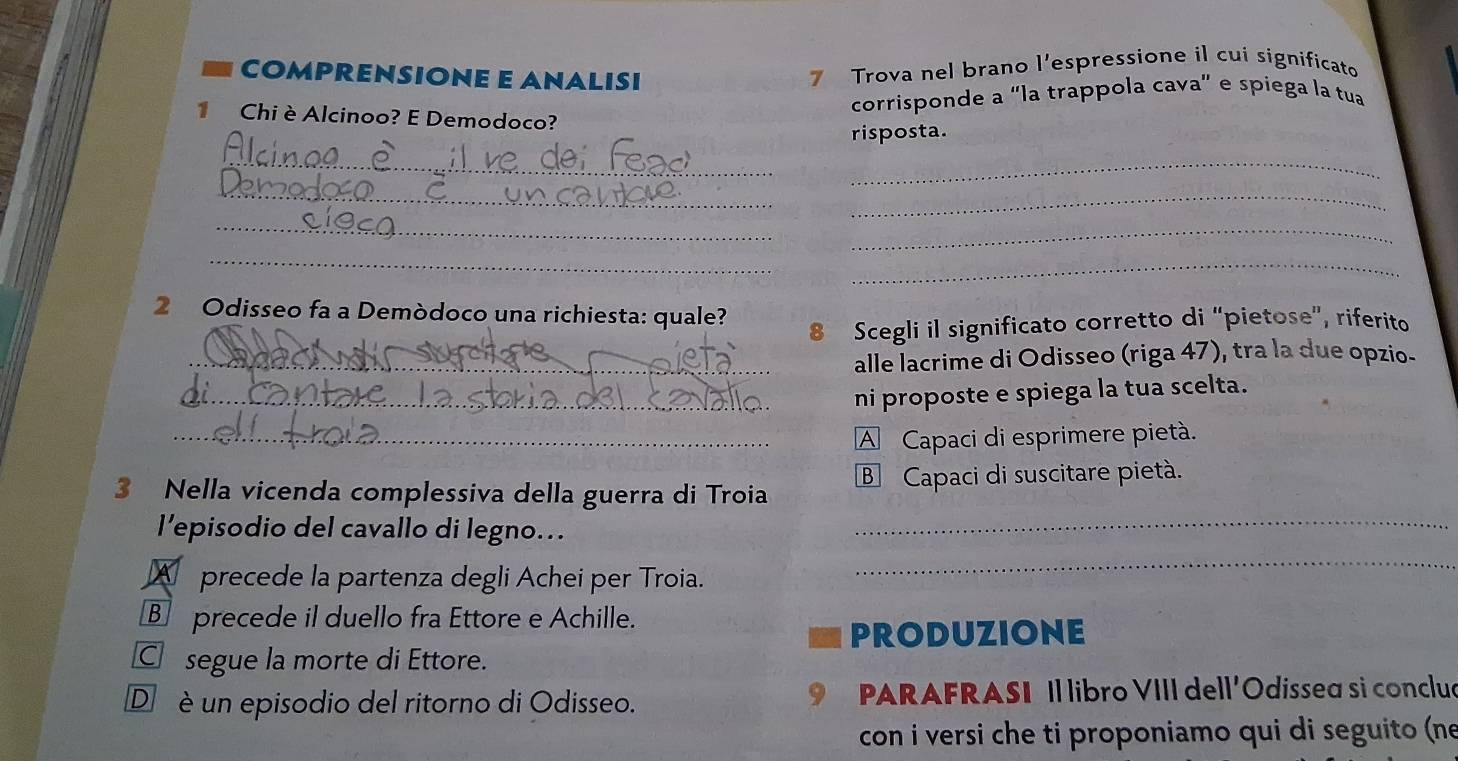 COMPRENSIONE E ANALISI
1 Chi è Alcinoo? E Demodoco?
Alcinoo è il re dei Feaci
Demodoco è un cantore
cieco
2 Odisseo fa a Demòdoco una richiesta: quale?
suscitare pietà
di cantare la storia del cavallo
di troia
3 Nella vicenda complessiva della guerra di Troia
l'episodio del cavallo di legno...
A precede la partenza degli Achei per Troia.
B precede il duello fra Ettore e Achille.
C segue la morte di Ettore.
D è un episodio del ritorno di Odisseo.
7 Trova nel brano l'espressione il cui significato
corrisponde a "la trappola cava" e spiega la tua
risposta.
8 Scegli il significato corretto di "pietose", riferito
alle lacrime di Odisseo (riga 47), tra la due opzio-
ni proposte e spiega la tua scelta.
A Capaci di esprimere pietà.
B Capaci di suscitare pietà.
PRODUZIONE
9 PARAFRASI Il libro VIII dell'Odissea si conclud
con i versi che ti proponiamo qui di seguito (ne